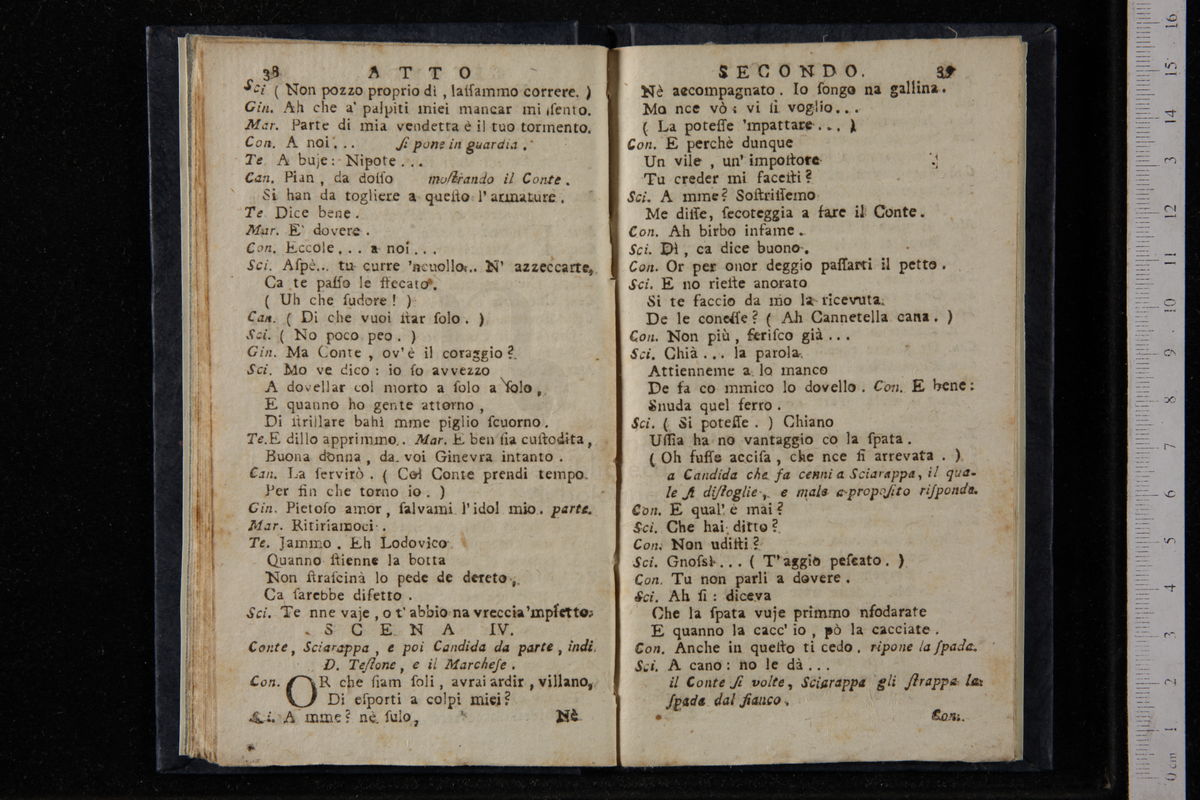 38 ATTO
Sci ( Non pozzo proprio di , laſſammo correre. )
Gin. Ah che a' palpiti miei mancar mi ſento.
Mar. Parte di mia vendetta è il tuo tormento.
Con. A noi . . . ſi pone in guardia .
Te. A buje: Nipote . . .
Can. Pian , da doſſo moſtrando il Conte .
Si han da togliere a queſto l'armature .
Te. Dice bene .
Mar. E' dovere .
Con. Eccole . . . a noi . . .
Sci. Aſpè... tu curre 'ncuollo... N' azzeccarte,
Ca te paſſo le ſtecato .
( Uh che ſudore ! )
Can. ( Di che vuoi ſtar ſolo . )
Sci. ( No poco peo . )
Gin. Ma Conte , ov' è il coraggio ?
Sci. Mo ve dico : io ſo avvezzo
A dovellar col morto a ſolo a ſolo ,
E quanno ho gente attorno ,
Di ſtrillare bahì mme piglio ſcuorno .
Te. E dillo apprimmo . Mar. E ben ſia cuſtodita ,
Buona donna , da voi Ginevra intanto .
Can. La ſervirò . ( Col Conte prendi tempo
Per fin che torno io . )
Gin. Pietoſo amor , ſalvami l'idol mio . parte.
Mar. Ritiriamoci .
Te. Jammo . Eh Lodovico
Quanno ſtienne la botta
Non ſtraſcinà lo pede de dereto ,
Ca ſarebbe difetto .
Sci. Te nne vaje , o t' abbio na vreccia 'mpietto.
SCENA IV.
Conte , Sciarappa , e poi Candida da parte , indi
D. Teſtone , e il Marcheſe .
Con. OR che ſiam ſoli , avrai ardir , villano,
Di eſporti a colpi miei ?
Sci. A mme ? nè ſulo, Nè
SECONDO. 39
Nè accompagnato . Io ſongo na gallina.
Mo nce vò : vi ſi voglio . . .
( La poteſſe 'mpattare . . . )
Con. E perchè dunque
Un vile , un' impoſtore
Tu creder mi faceſti ?
Sci. A mme ? Soſtriſſemo
Me diſſe , ſecoteggia a fare il Conte .
Con. Ah birbo infame .
Sci. Dì , ca dice buono .
Con. Or per onor deggio paſſarti il petto .
Sci. E no rieſte anorato
Si te faccio da mo la ricevuta.
De le coneſſe ? ( Ah Cannetella cana . )
Con. Non più , feriſco già . . .
Sci. Chià . . . la parola
Attienneme a lo manco
De fa co mmico lo dovello . Con. E bene :
Snuda quel ferro .
Sci. ( Si poteſſe . ) Chiano
Uſſia ha no vantaggio co la ſpata .
( Oh fuſſe acciſa , che nce ſi arrevata . )
a Candida che fa cenni a Sciarappa, il qua-
le ſi diſtoglie , e male a propoſito riſponde.
Con. E qual' è mai ?
Sci. Che hai ditto ?
Con. Non udiſti ?
Sci. Gnoſsì . . . ( T' aggio peſcato . )
Con. Tu non parli a dovere .
Sci. Ah ſi : diceva
Che la ſpata vuje primmo nfodarate
E quanno la cacc' io , pò la cacciate .
Con. Anche in queſto ti cedo . ripone la ſpada.
Sci. A cano : no le dà . . .
il Conte ſi volte , Sciarappa gli ſtrappa la
ſpada dal fianco .
Con.